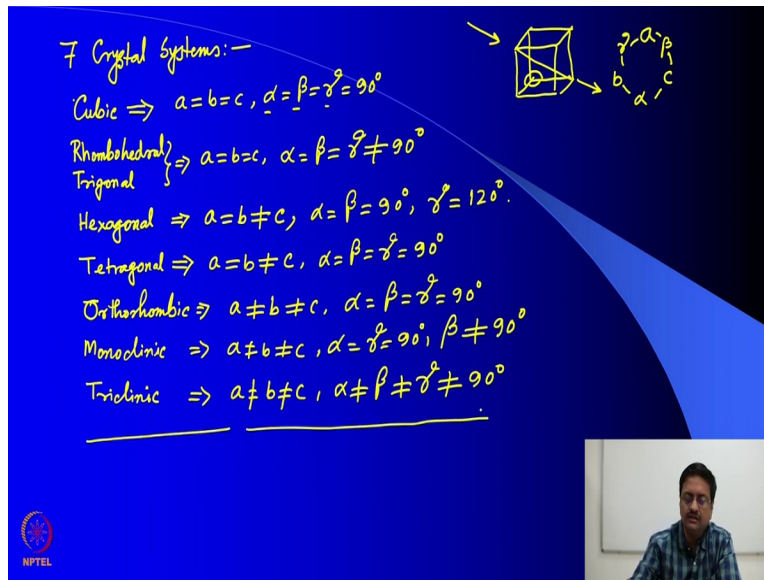 7 Crystal Systems:-
Cubic ⇒ a=b=c, α=β=γ=90°
Rhombohedral
Trigonal } ⇒ a=b=c, α=β=γ≠90°
Hexagonal ⇒ a=b≠c, α=β=90°, γ=120°.
Tetragonal ⇒ a=b≠c, α=β=γ=90°
Orthorhombic ⇒ a≠b≠c, α=β=γ=90°
Monoclinic ⇒ a≠b≠c, α=γ=90°, β≠90°
Triclinic ⇒ a≠b≠c, α≠β≠γ≠90°
γ-a-β
b c
α
NPTEL